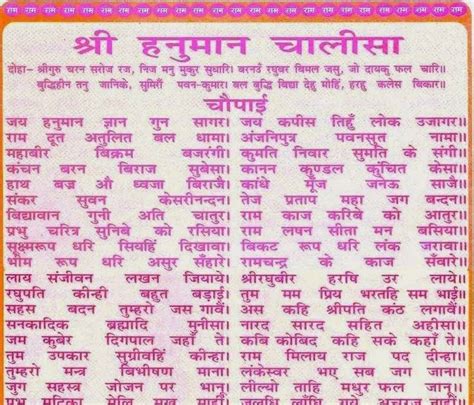 राम राम राम राम राम राम राम राम राम राम राम राम राम राम राम राम
श्री हनुमान चालीसा
दोहा- श्रीगुरु चरन सरोज रज, निज मनु मुकुर सुधारि। बरनउँ रघुवर बिमल जसु, जो दायकु फल चारि।।
बुद्धिहीन तनु जानिके, सुमिरौं पवन-कुमार। बल बुद्धि विद्या देहु मोहिं, हरहु कलेस बिकार।।
चौपाई
जय हनुमान ज्ञान गुन सागर। जय कपीस तिहुँ लोक उजागर।।
राम दूत अतुलित बल धामा। अंजनिपुत्र पवनसुत नामा।।
महाबीर बिक्रम बजरंगी। कुमति निवार सुमति के संगी।।
कंचन बरन बिराज सुबेसा। कानन कुण्डल कुंचित केसा।।
हाथ बज्र औ ध्वजा बिराजै। कांधे मूंज जनेऊ साजै।।
संकर सुवन केसरीनन्दन। तेज प्रताप महा जग बन्दन।।
विद्यावान गुनी अति चातुर। राम काज करिबे को आतुर।।
प्रभु चरित्र सुनिबे को रसिया। राम लषन सीता मन बसिया।।
सूक्ष्मरूप धरि सियहिं दिखावा। बिकट रूप धरि लंक जरावा।।
भीम रूप धरि असुर सँहारे। रामचन्द्र के काज सँवारे।।
लाय संजीवन लखन जियाये। श्रीरघुबीर हरषि उर लाये।।
रघुपति कीन्ही बहुत बड़ाई। तुम मम प्रिय भरतहि सम भाई।।
सहस बदन तुम्हरो जस गावैं। अस कहि श्रीपति कंठ लगावैं।।
सनकादिक ब्रह्मादि मुनीसा। नारद सारद सहित अहीसा।।
जम कुबेर दिगपाल जहाँ ते। कबि कोबिद कहि सके कहाँ ते।।
तुम उपकार सुग्रीवहिं कीन्हा। राम मिलाय राज पद दीन्हा।।
तुम्हरो मन्त्र बिभीषण माना। लंकेस्वर भए सब जग जाना।।
जुग सहस्त्र जोजन पर भानू। लील्यो ताहि मधुर फल जानू।।
प्रभु मुद्रिका मेलि मुख माहीं। जलधि लाँघि गये अचरज नाहीं।।